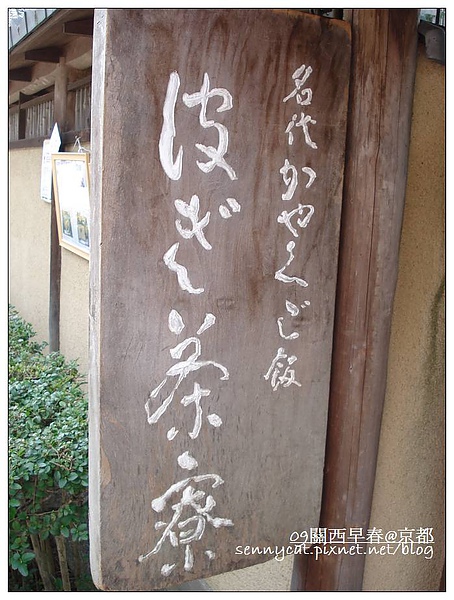 名代かやくご飯
波ぎ茶寮
09關西早春@京都
sennycat.pixnet.net/blog